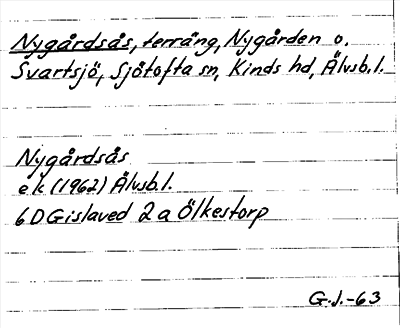 Nygårdsås, terräng, Nygården o.
Svartsjö, Sjötofta sn, Kinds hd, Älvsb.l.
Nygårdsås
ek (1962) Älvsb.l.
6D Gislaved 2a Ölkestorp
G.J.-63